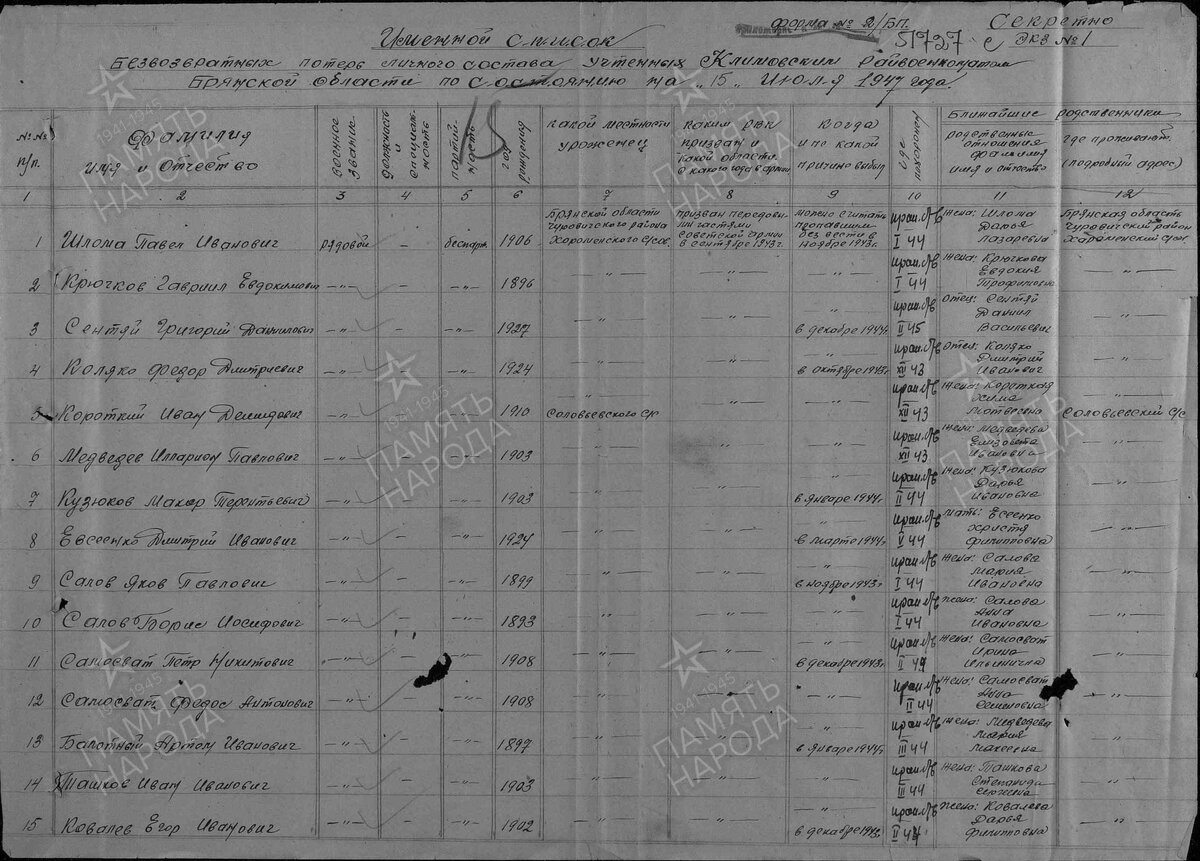 Форма № 2/БП.
Секретно
51727 с
Экз № 1
Именной список
Безвозвратных потерь личного состава учтенных Климовским райвоенкоматом
Брянской области по состоянию на "15" Июля 1947 года.
№№ п/п. Фамилия имя и отчество военное звание должность и специальность партийность год рождения какой местности уроженец каким РВК призван и какой области с какого года в армии когда и по какой причине выбыл где похоронен Ближайшие родственники
родственные отношения фамилия имя и отчество где проживают (подробный адрес)
1 2 3 4 5 6 7 8 9 10 11 12
1 Шлома Павел Иванович рядовой – беспарт. 1906 Брянской области Чуровичского района Хороменского с/сов. призван передовыми частями Советской армии в сентябре 1943 г. можно считать пропавшим без вести в ноябре 1943 г. I 44 жена: Шлома Дарья Лазаревна Брянская область Чуровичский район Хароменский с/сов
2 Крючков Гавриил Евдокимович –"– – –"– 1896 –"– –"– –"– I 44 жена: Крючкова Евдокия Трофимовна –"–
3 Сентяй Григорий Данилович –"– – –"– 1927 –"– –"– –"– в декабре 1944 г. II 45 отец: Сентяй Данил Васильевич –"–
4 Коляко Федор Дмитриевич –"– – –"– 1924 –"– –"– –"– в октябре 1943 г. XII 43 отец: Коляко Дмитрий Иванович –"–
5 Короткий Иван Демидович –"– – –"– 1910 Соловьевского с/с –"– –"– XII 43 жена: Короткая Хима Матвеевна Соловьевский с/с
6 Медведев Илларион Павлович –"– – –"– 1903 –"– –"– –"– XII 43 жена: Медведева Елизовета Ивановна –"–
7 Кузюков Макар Терентьевич –"– – –"– 1903 –"– –"– –"– в январе 1944 г. II 44 жена: Кузюкова Дарья Ивановна –"–
8 Евсеенко Дмитрий Иванович –"– – –"– 1924 –"– –"– –"– в марте 1944 г. V 44 мать: Есеенко Христя Филипповна –"–
9 Салов Яков Павлович –"– – –"– 1899 –"– –"– –"– в ноябре 1943 г. I 44 жена: Салова Мария Ивановна –"–
10 Салов Борис Иосифович –"– – –"– 1893 –"– –"– –"– I 44 жена: Салова Анна Ивановна –"–
11 Самосват Петр Никитович –"– – –"– 1908 –"– –"– –"– в декабре 1943 г. II 44 жена: Самосват Ирина Ильинична –"–
12 Самосват Федос Антонович –"– – –"– 1908 –"– –"– –"– II 44 жена: Самосват Анна Семеновна –"–
13 Балотный Артом Иванович –"– – –"– 1897 –"– –"– –"– в январе 1944 г. III 44 жена: Медведева Мария Макеевна –"–
14 Ташков Иван Иванович –"– – –"– 1903 –"– –"– –"– III 44 жена: Ташкова Степанида Сергеевна –"–
15 Ковалев Егор Иванович –"– – –"– 1902 –"– –"– –"– в декабре 1943 г. II 44 жена: Ковалева Дарья Филипповна –"–
1941-1945
ПАМЯТЬ
НАРОДА